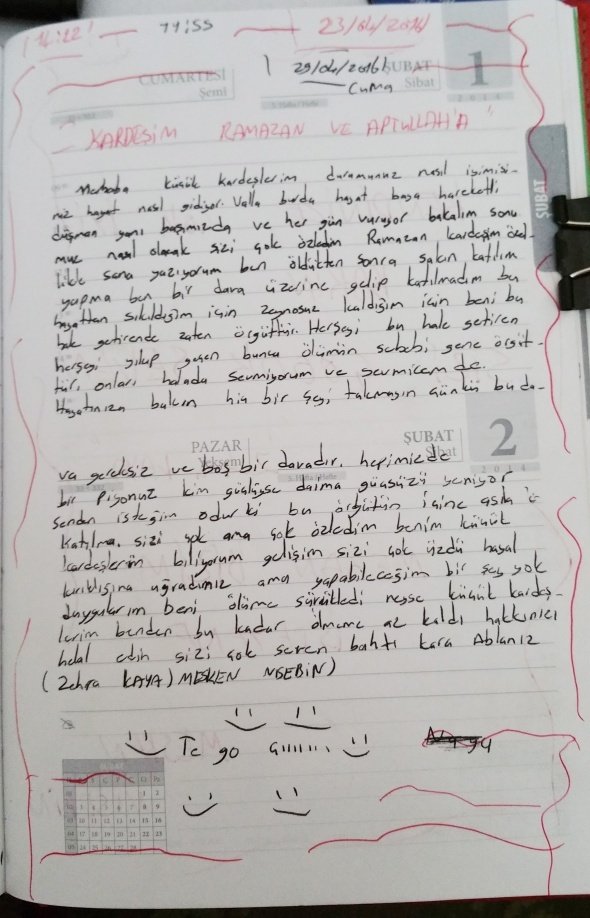 14:22
23/04/2016
29/04/2016
CUMARTESİ
Şemî
ŞUBAT
Sibat
1
2014
Cuma
KARDEŞİM RAMAZAN VE APTULLAH'A
ŞUBAT
Merhaba küçük kardeşlerim durumunuz nasıl iyimisi-
niz hayat nasıl gidiyor. Valla burda hayat baya hareketli
düşman yanı başımızda ve her gün vuruyor bakalım sonu
muz nasıl olacak sizi çok özledim Ramazan kardeşim özel-
likle sana yazıyorum ben öldükten sonra sakın katılım
yapma ben bir dava üzerine gelip katılmadım bu
hayattan sıkıldığım için kaldığım için beni bu
hale getirende zaten örgüttür. Herşeyi bu hale getiren
herşeyi yıkıp geçen bunca ölümün sebebi gene örgüt-
tür, onları halada sevmiyorum ve sevmicem de.
Hayatınıza bakın hiç bir şeyi takmayın çünkü bu da-
PAZAR
Yekşem
ŞUBAT
Sibat
2
2014
va gereksiz ve boş bir davadır. hepimizde
bir Piyonuz kim güçlüyse daima güçsüzü yeniyor
senden isteğim odur ki bu örgütün içine asla
katılma. sizi çok ama çok özledim benim küçük
kardeşlerim biliyorum gelişim sizi çok üzdü hayal
kırıklığına uğradınız ama yapabileceğim bir şey yok
duygularım beni ölüme sürükledi neyse küçük kardeş-
lerim benden bu kadar ölmeme az kaldı hakkınızı
helal edin sizi çok seven bahtı kara Ablanız
(Zehra KAYA)
Te go
ŞUBAT